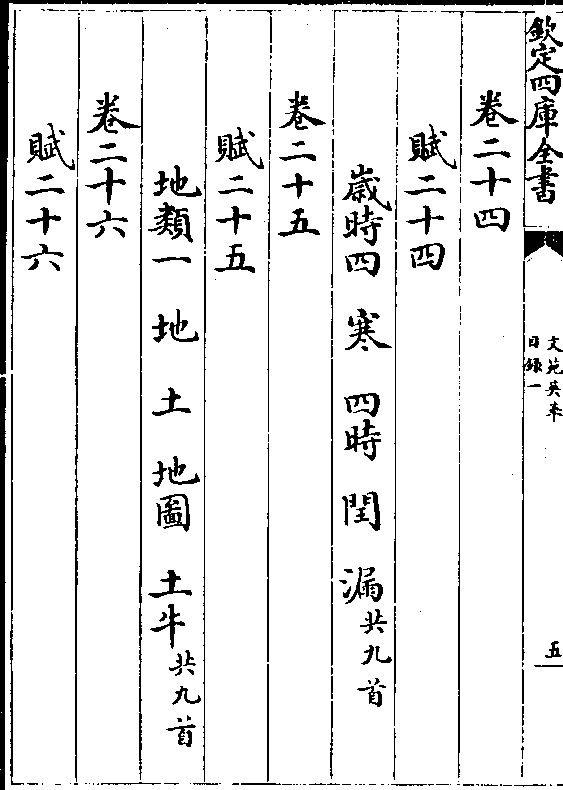 欽定四庫全書
文苑英華
目録一
五
卷二十四
賦二十四
歳時四 寒 四時 閏 漏共九首
卷二十五
賦二十五
地類一 地 土 地圖 土牛共九首
卷二十六
賦二十六